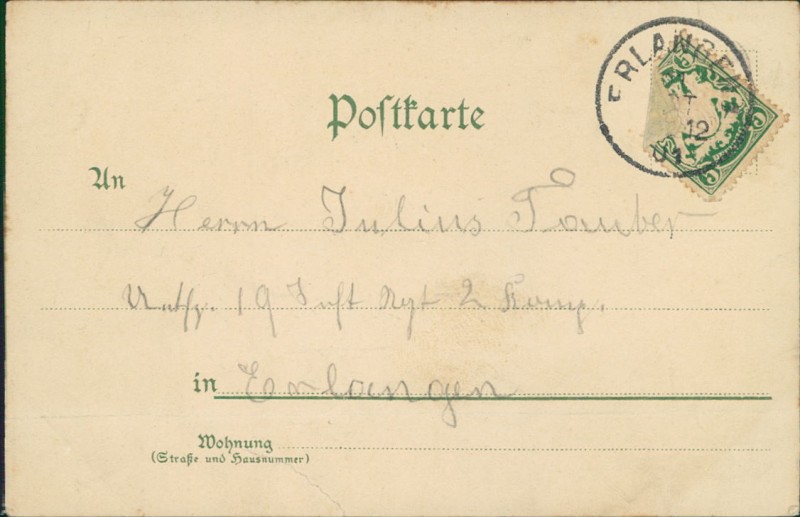 ERLANGEN
12
01
5
5
5
Postkarte
An
Herrn Julius Tauber
19 Inft Rgt 2 Komp.
in Erlangen
Wohnung
(Straße und Hausnummer)